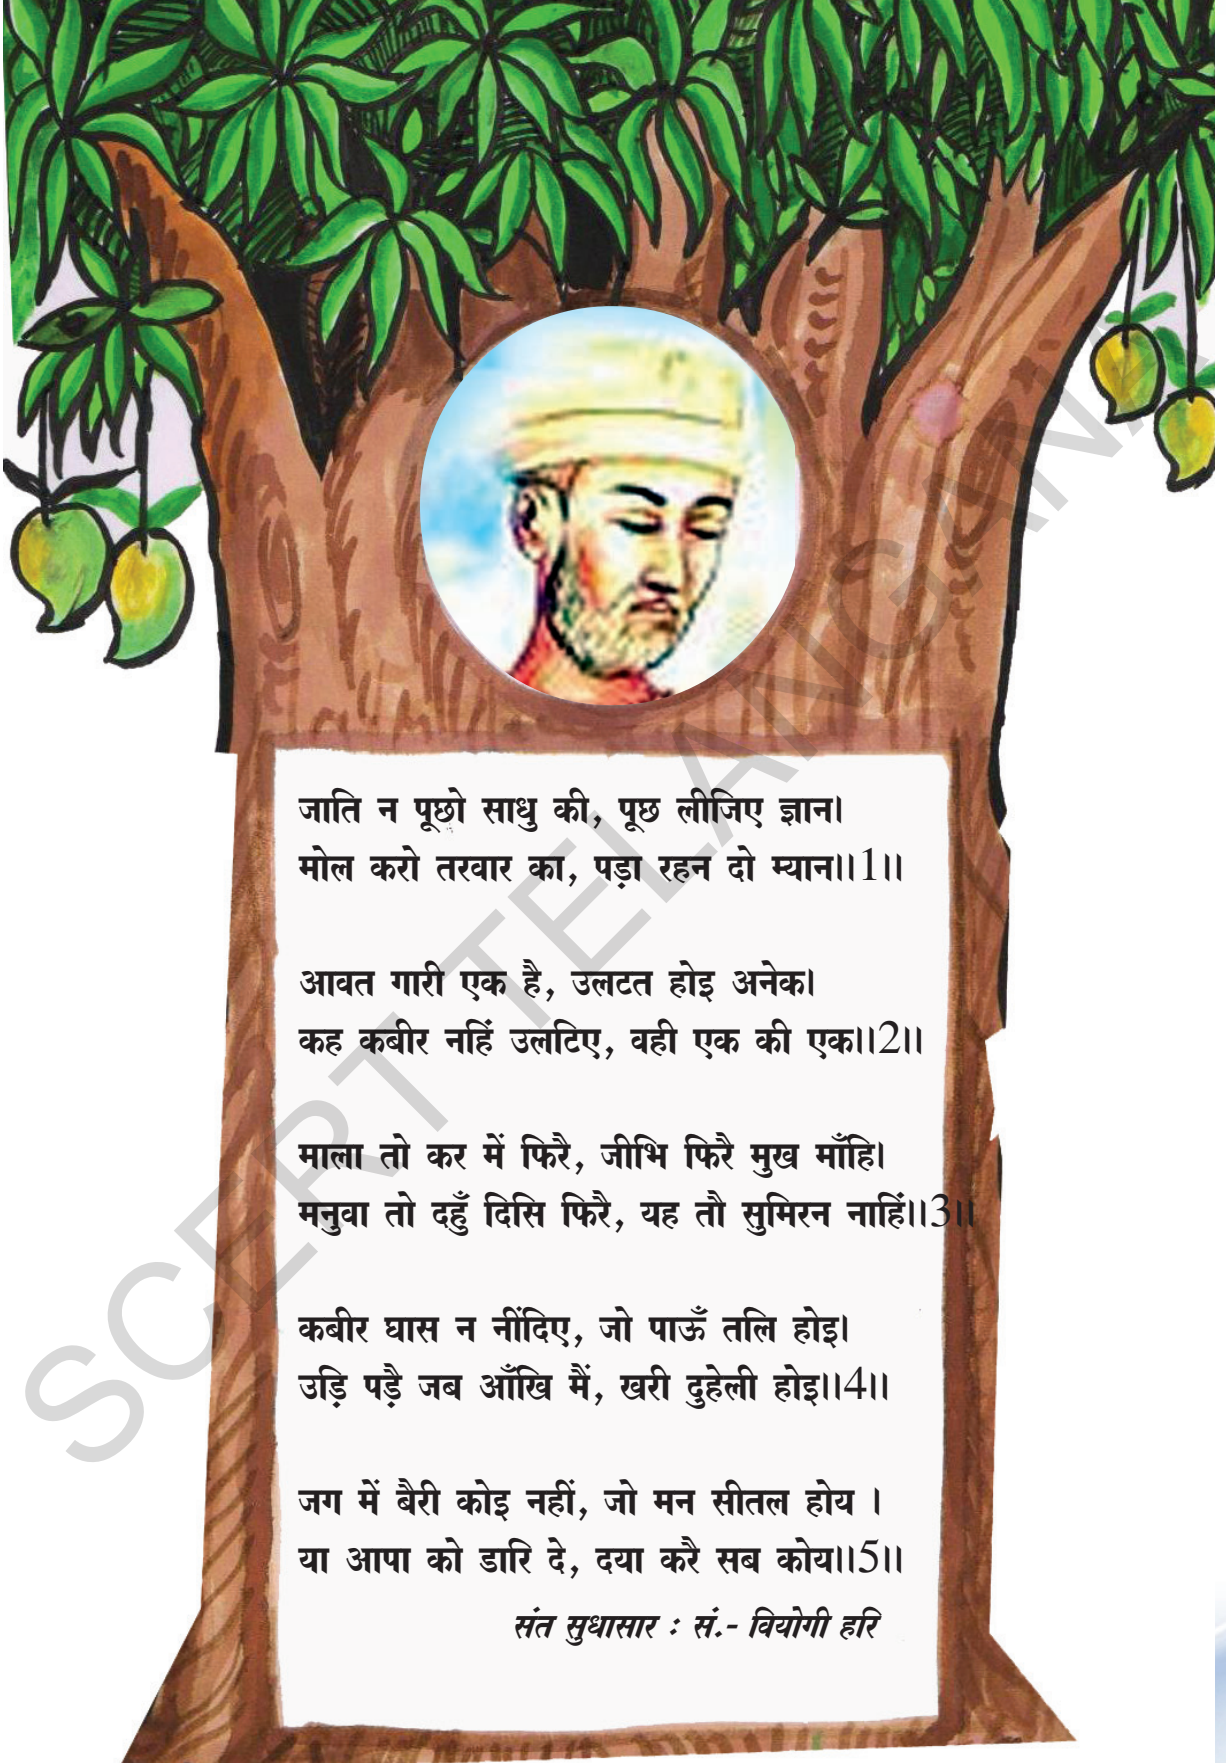 जाति न पूछो साधु की, पूछ लीजिए ज्ञान।
मोल करो तरवार का, पड़ा रहन दो म्यान।।1।।
आवत गारी एक है, उलटत होइ अनेक।
कह कबीर नहिं उलटिए, वही एक की एक।।2।।
माला तो कर में फिरै, जीभि फिरै मुख माँहि।
मनुवा तो दहुँ दिसि फिरै, यह तौ सुमिरन नाहिं।।3।।
कबीर घास न नींदिए, जो पाऊँ तलि होइ।
उड़ि पड़ै जब आँखि मैं, खरी दुहेली होइ।।4।।
जग में बैरी कोइ नहीं, जो मन सीतल होय ।
या आपा को डारि दे, दया करै सब कोय।।5।।
संत सुधासार : सं.- वियोगी हरि
SCERT TELANGANA